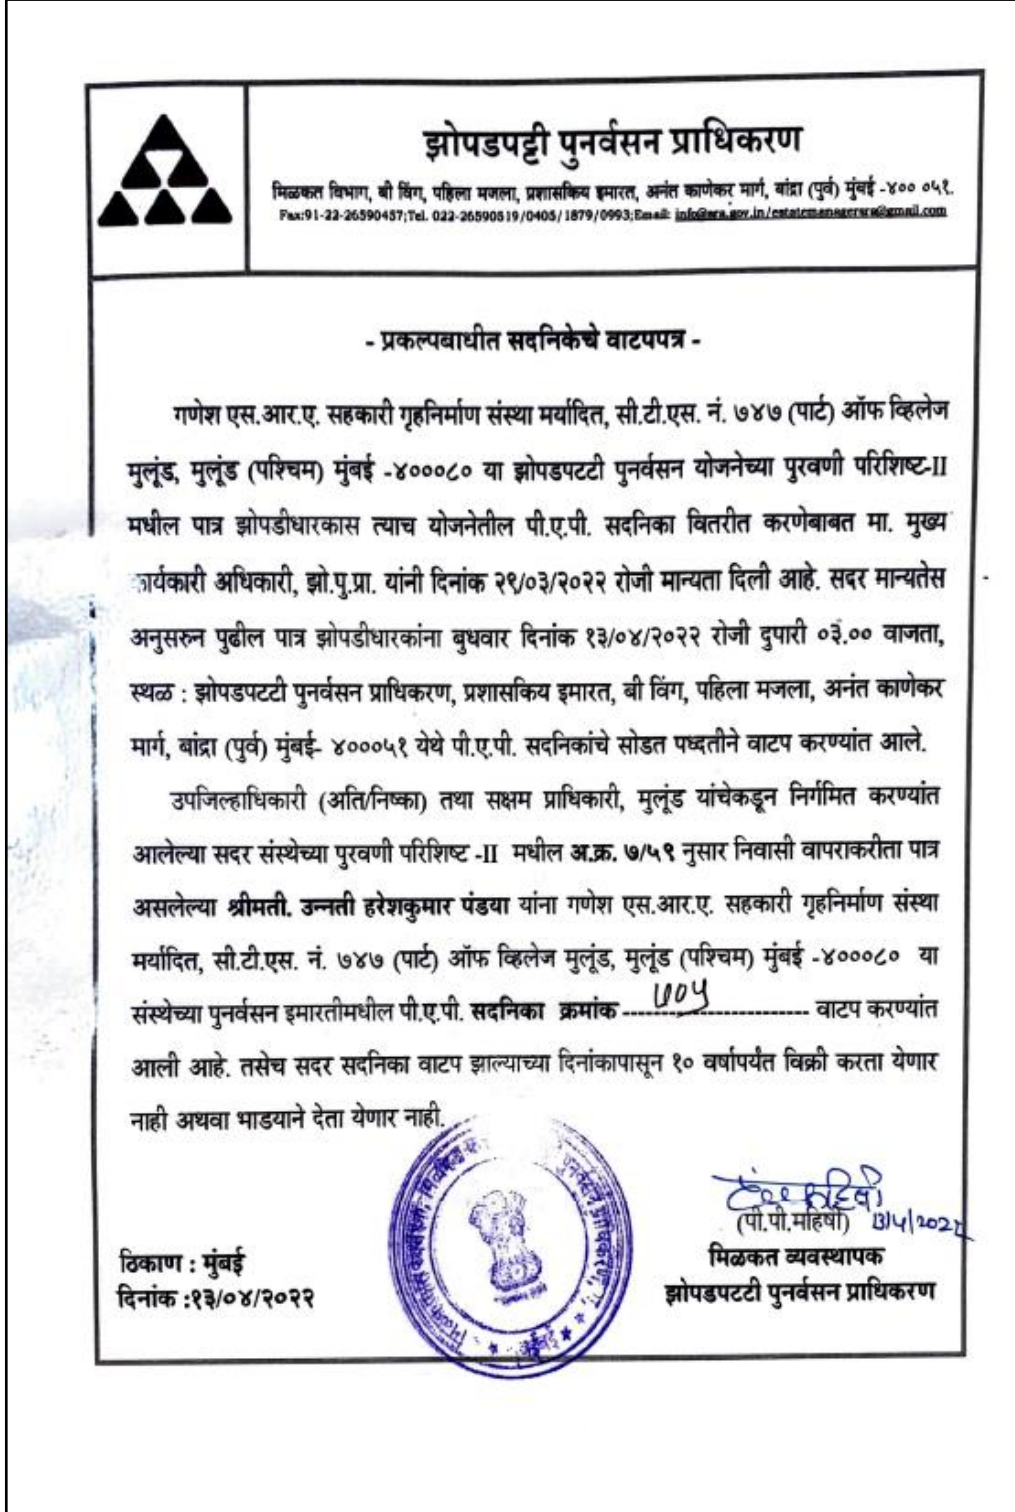 झोपडपट्टी पुनर्वसन प्राधिकरण
मिळकत विभाग, बी विंग, पहिला मजला, प्रशासकिय इमारत, अनंत काणेकर मार्ग, बांद्रा (पुर्व) मुंबई -४०० ०५१.
Fax:91-22-26590457;Tel. 022-26590519/0405/1879/0993;Email: info@sra.gov.in/estatemanagersra@gmail.com
- प्रकल्पबाधीत सदनिकेचे वाटपपत्र -
गणेश एस.आर.ए. सहकारी गृहनिर्माण संस्था मर्यादित, सी.टी.एस. नं. ७४७ (पार्ट) ऑफ व्हिलेज
मुलूंड, मुलूंड (पश्चिम) मुंबई -४०००८० या झोपडपटटी पुनर्वसन योजनेच्या पुरवणी परिशिष्ट-II
मधील पात्र झोपडीधारकास त्याच योजनेतील पी.ए.पी. सदनिका वितरीत करणेबाबत मा. मुख्य
कार्यकारी अधिकारी, झो.पु.प्रा. यांनी दिनांक २९/०३/२०२२ रोजी मान्यता दिली आहे. सदर मान्यतेस
अनुसरुन पुढील पात्र झोपडीधारकांना बुधवार दिनांक १३/०४/२०२२ रोजी दुपारी ०३.०० वाजता,
स्थळ : झोपडपटटी पुनर्वसन प्राधिकरण, प्रशासकिय इमारत, बी विंग, पहिला मजला, अनंत काणेकर
मार्ग, बांद्रा (पुर्व) मुंबई- ४०००५१ येथे पी.ए.पी. सदनिकांचे सोडत पध्दतीने वाटप करण्यांत आले.
उपजिल्हाधिकारी (अति/निष्का) तथा सक्षम प्राधिकारी, मुलूंड यांचेकडून निर्गमित करण्यांत
आलेल्या सदर संस्थेच्या पुरवणी परिशिष्ट -II मधील अ.क्र. ७/५९ नुसार निवासी वापराकरीता पात्र
असलेल्या श्रीमती. उन्नती हरेशकुमार पंडया यांना गणेश एस.आर.ए. सहकारी गृहनिर्माण संस्था
मर्यादित, सी.टी.एस. नं. ७४७ (पार्ट) ऑफ व्हिलेज मुलूंड, मुलूंड (पश्चिम) मुंबई -४०००८० या
संस्थेच्या पुनर्वसन इमारतीमधील पी.ए.पी. सदनिका क्रमांक ------७०५------ वाटप करण्यांत
आली आहे. तसेच सदर सदनिका वाटप झाल्याच्या दिनांकापासून १० वर्षापर्यंत विक्री करता येणार
नाही अथवा भाडयाने देता येणार नाही.
(पी.पी.महिषी) 13/4/2022
मिळकत व्यवस्थापक
झोपडपटटी पुनर्वसन प्राधिकरण
ठिकाण : मुंबई
दिनांक :१३/०४/२०२२
पुनर्वसन प्राधिकरण
मुंबई